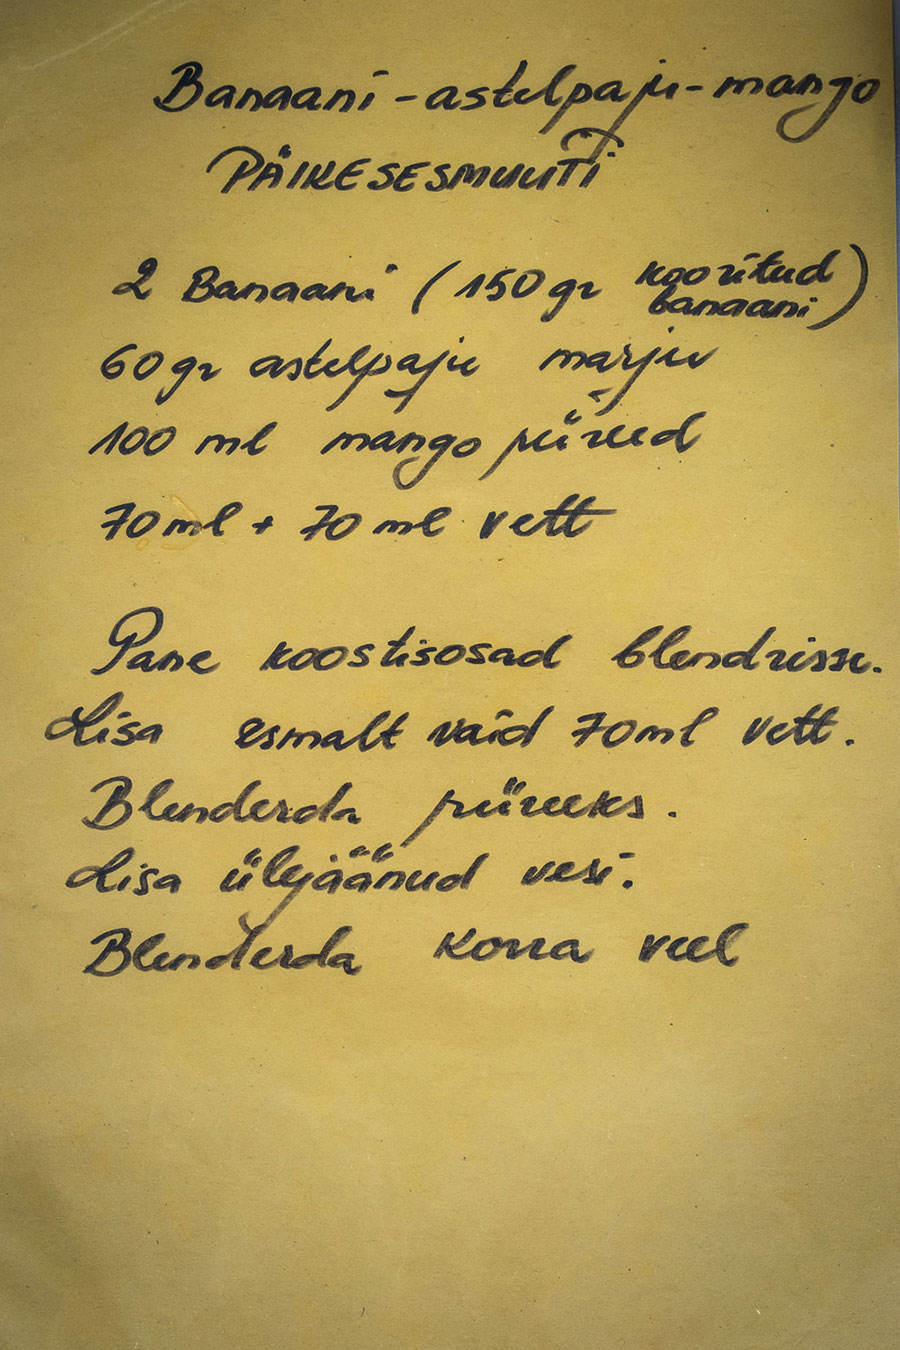 Banaani-astelpaju-mango
PÄIKESESMUUTI
2 Banaani (150gr kooritud banaani)
60gr astelpaju marju
100 ml mango püreed
70ml + 70ml vett
Pane koostisosad blendrisse.
Lisa esmalt vaid 70ml vett.
Blenderda püreeks.
Lisa ülejäänud vesi.
Blenderda korra veel